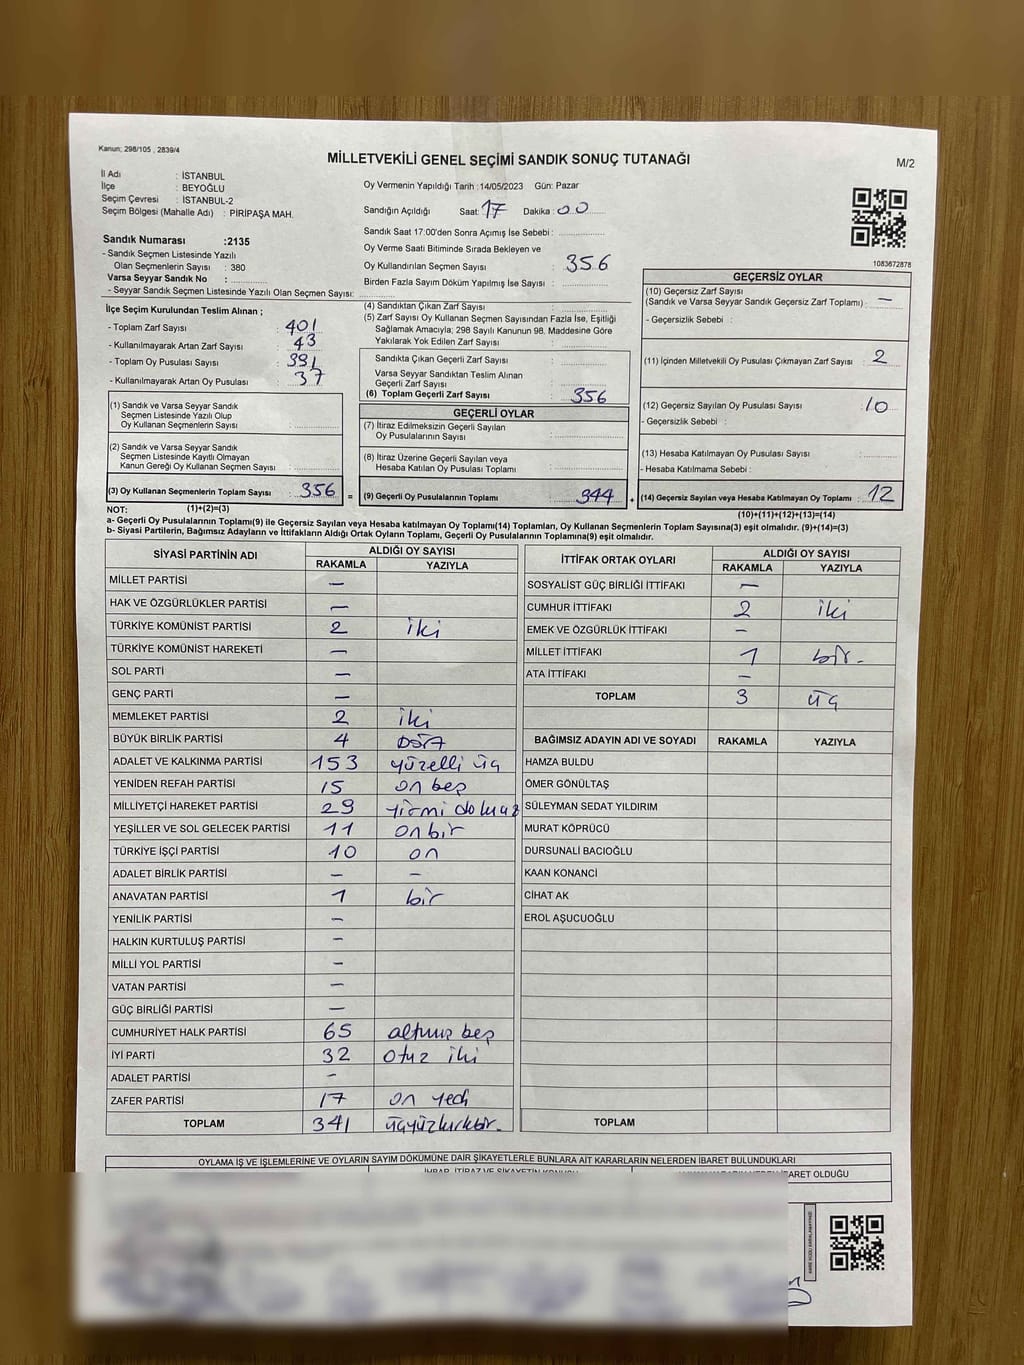 Kanun: 298/105 , 2839/4
MİLLETVEKİLİ GENEL SEÇİMİ SANDIK SONUÇ TUTANAĞI
M/2
İl Adı : İSTANBUL
İlçe : BEYOĞLU
Seçim Çevresi : İSTANBUL-2
Seçim Bölgesi (Mahalle Adı) : PİRİPAŞA MAH.
Sandık Numarası :2135
- Sandık Seçmen Listesinde Yazılı
Olan Seçmenlerin Sayısı : 380
Varsa Seyyar Sandık No :
- Seyyar Sandık Seçmen Listesinde Yazılı Olan Seçmen Sayısı:
Oy Vermenin Yapıldığı Tarih :14/05/2023 Gün: Pazar
Sandığın Açıldığı Saat: 17 Dakika : 00
Sandık Saat 17:00'den Sonra Açımış İse Sebebi :
Oy Verme Saati Bitiminde Sırada Bekleyen ve
Oy Kullandırılan Seçmen Sayısı : 356
Birden Fazla Sayım Döküm Yapılmış İse Sayısı :
1083672878
İlçe Seçim Kurulundan Teslim Alınan ;
- Toplam Zarf Sayısı : 401
- Kullanılmayarak Artan Zarf Sayısı : 43
- Toplam Oy Pusulası Sayısı : 391
- Kullanılmayarak Artan Oy Pusulası : 37
(1) Sandık ve Varsa Seyyar Sandık
Seçmen Listesinde Yazılı Olup
Oy Kullanan Seçmenlerin Sayısı :
(2) Sandık ve Varsa Seyyar Sandık
Seçmen Listesinde Kayıtlı Olmayan
Kanun Gereği Oy Kullanan Seçmen Sayısı :
(3) Oy Kullanan Seçmenlerin Toplam Sayısı : 356
(4) Sandıktan Çıkan Zarf Sayısı :
(5) Zarf Sayısı Oy Kullanan Seçmen Sayısından Fazla İse, Eşitliği
Sağlamak Amacıyla; 298 Sayılı Kanunun 98. Maddesine Göre
Yakılarak Yok Edilen Zarf Sayısı :
Sandıkta Çıkan Geçerli Zarf Sayısı :
Varsa Seyyar Sandıktan Teslim Alınan
Geçerli Zarf Sayısı :
(6) Toplam Geçerli Zarf Sayısı : 356
GEÇERLİ OYLAR
(7) İtiraz Edilmeksizin Geçerli Sayılan
Oy Pusulalarının Sayısı :
(8) İtiraz Üzerine Geçerli Sayılan veya
Hesaba Katılan Oy Pusulası Toplamı :
= (9) Geçerli Oy Pusulalarının Toplamı : 344 +
GEÇERSİZ OYLAR
(10) Geçersiz Zarf Sayısı
(Sandık ve Varsa Seyyar Sandık Geçersiz Zarf Toplamı) : —
- Geçersizlik Sebebi :
(11) İçinden Milletvekili Oy Pusulası Çıkmayan Zarf Sayısı : 2
(12) Geçersiz Sayılan Oy Pusulası Sayısı : 10
- Geçersizlik Sebebi :
(13) Hesaba Katılmayan Oy Pusulası Sayısı :
- Hesaba Katılmama Sebebi :
(14) Geçersiz Sayılan veya Hesaba Katılmayan Oy Toplamı : 12
NOT: (1)+(2)=(3)
(10)+(11)+(12)+(13)=(14)
a- Geçerli Oy Pusulalarının Toplamı(9) ile Geçersiz Sayılan veya Hesaba katılmayan Oy Toplamı(14) Toplamları, Oy Kullanan Seçmenlerin Toplam Sayısına(3) eşit olmalıdır. (9)+(14)=(3)
b- Siyasi Partilerin, Bağımsız Adayların ve İttifakların Aldığı Ortak Oyların Toplamı, Geçerli Oy Pusulalarının Toplamına(9) eşit olmalıdır.
SİYASİ PARTİNİN ADI ALDIĞI OY SAYISI
RAKAMLA YAZIYLA
MİLLET PARTİSİ —
HAK VE ÖZGÜRLÜKLER PARTİSİ —
TÜRKİYE KOMÜNİST PARTİSİ 2 iki
TÜRKİYE KOMÜNİST HAREKETİ —
SOL PARTİ —
GENÇ PARTİ —
MEMLEKET PARTİSİ 2 iki
BÜYÜK BİRLİK PARTİSİ 4 DÖRT
ADALET VE KALKINMA PARTİSİ 153 yüzelli üç
YENİDEN REFAH PARTİSİ 15 on beş
MİLLİYETÇİ HAREKET PARTİSİ 29 yirmi dokuz
YEŞİLLER VE SOL GELECEK PARTİSİ 11 on bir
TÜRKİYE İŞÇİ PARTİSİ 10 on
ADALET BİRLİK PARTİSİ — —
ANAVATAN PARTİSİ 1 bir
YENİLİK PARTİSİ —
HALKIN KURTULUŞ PARTİSİ —
MİLLİ YOL PARTİSİ —
VATAN PARTİSİ —
GÜÇ BİRLİĞİ PARTİSİ —
CUMHURİYET HALK PARTİSİ 65 altmış beş
İYİ PARTİ 32 Otuz iki
ADALET PARTİSİ —
ZAFER PARTİSİ 17 on yedi
TOPLAM 341 üçyüzkırkbir.
İTTİFAK ORTAK OYLARI ALDIĞI OY SAYISI
RAKAMLA YAZIYLA
SOSYALİST GÜÇ BİRLİĞİ İTTİFAKI —
CUMHUR İTTİFAKI 2 iki
EMEK VE ÖZGÜRLÜK İTTİFAKI —
MİLLET İTTİFAKI 1 bir.
ATA İTTİFAKI —
TOPLAM 3 üç
BAĞIMSIZ ADAYIN ADI VE SOYADI RAKAMLA YAZIYLA
HAMZA BULDU
ÖMER GÖNÜLTAŞ
SÜLEYMAN SEDAT YILDIRIM
MURAT KÖPRÜCÜ
DURSUNALİ BACIOĞLU
KAAN KONANCİ
CİHAT AK
EROL AŞUCUOĞLU
TOPLAM
OYLAMA İŞ VE İŞLEMLERİNE VE OYLARIN SAYIM DÖKÜMÜNE DAİR ŞİKAYETLERLE BUNLARA AİT KARARLARIN NELERDEN İBARET BULUNDUKLARI
İHBAR, İTİRAZ VE ŞİKAYETİN KONUSU
İBARET OLDUĞU